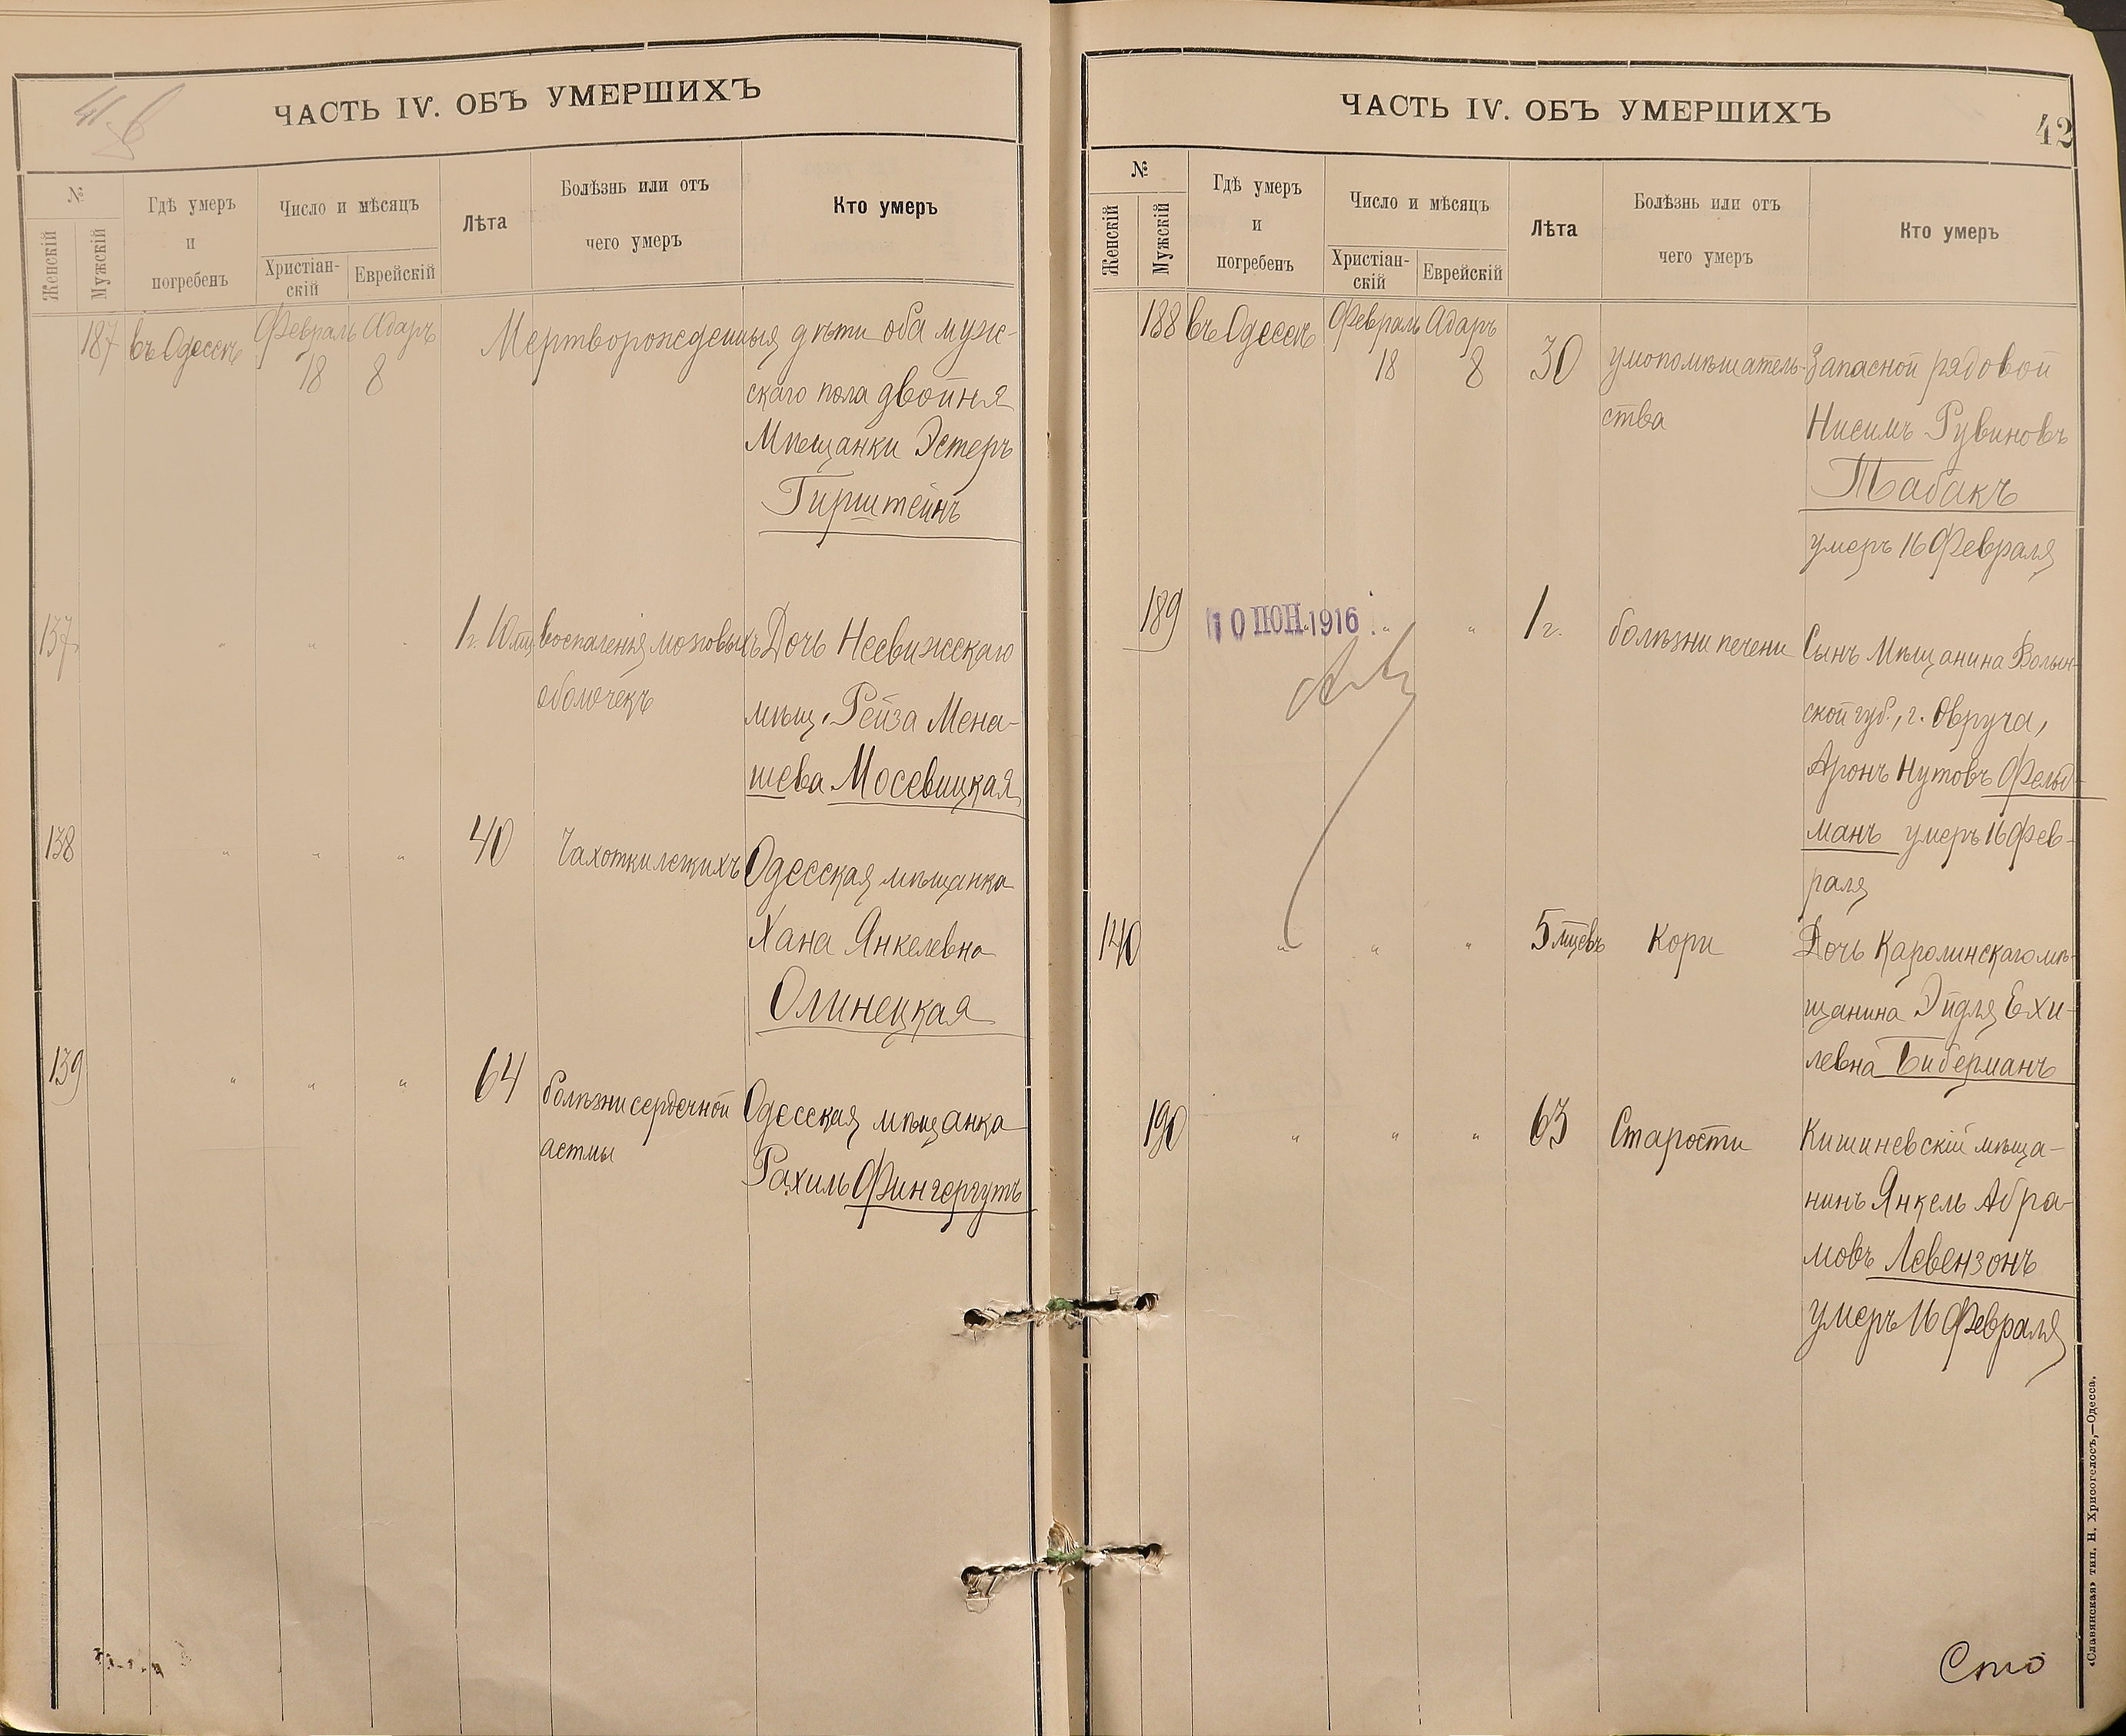 41 в
ЧАСТЬ IV. ОБЪ УМЕРШИХЪ
№
Женскій
Мужскій
Гдѣ умеръ
и
погребенъ
Число и мѣсяцъ
Христіан-
скій
Еврейскій
Лѣта
Болѣзнь или отъ
чего умеръ
Кто умеръ
187 въ Одессѣ Февраль Адаръ Мертворожденныя дѣти оба муж-
18 8 скаго пола двойня
Мѣщанки Эстеръ
Гирштейнъ
137 " " " 1 г. 10 мц. воспаленія мозговыхъ Дочь Несвижскаго
оболочекъ мѣщ. Рейза Мена-
шева Мосевицкая
138 " " " 40 Чахотки легкихъ Одесская мѣщанка
Хана Янкелевна
Олинецкая
139 " " " 64 болѣзни сердечной Одесская мѣщанка
астмы Рахиль Фингергутъ
ЧАСТЬ IV. ОБЪ УМЕРШИХЪ
42
№
Женскій
Мужскій
Гдѣ умеръ
и
погребенъ
Число и мѣсяцъ
Христіан-
скій
Еврейскій
Лѣта
Болѣзнь или отъ
чего умеръ
Кто умеръ
188 въ Одессѣ Февраль Адаръ
18 8 30 умопомѣшатель- Запасной рядовой
ства Нисимъ Рувиновъ
Табакъ
умеръ 16 Февраля
189 10 ІЮН. 1916 " " 1 г. болѣзни печени Сынъ Мѣщанина Волын-
ской губ., г. Овруча,
Аронъ Нутовъ Фельд-
манъ умеръ 16 Фев-
раля
140 " " " 5 мцевъ Кори Дочь Каролинскаго мѣ-
щанина Эйдля Ехи-
левна Биберманъ
190 " " " 63 Старости Кишиневскій мѣща-
нинъ Янкель Абра-
мовъ Левензонъ
умеръ 16 Февраля
Сто
«Славянская» тип. Н. Хрисогелосъ,—Одесса.